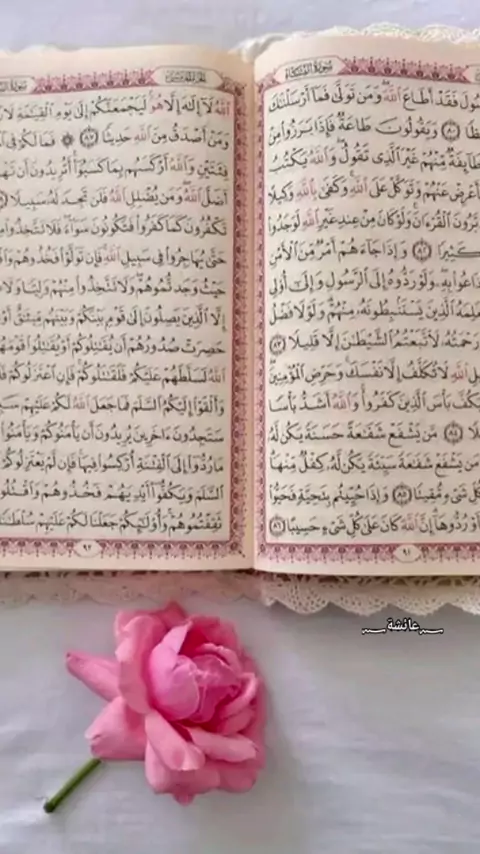 سورة النساء
سُولَ فَقَدْ أَطَاعَ ٱللَّهَ وَمَن تَوَلَّىٰ فَمَآ أَرْسَلْنَـٰكَ
ظًا ٨٠ وَيَقُولُونَ طَاعَةٌ فَإِذَا بَرَزُوا۟ مِنْ
طَآئِفَةٌ مِّنْهُمْ غَيْرَ ٱلَّذِى تَقُولُ وَٱللَّهُ يَكْتُبُ
أَعْرِضْ عَنْهُمْ وَتَوَكَّلْ عَلَى ٱللَّهِ وَكَفَىٰ بِٱللَّهِ وَكِيلًا
بَّرُونَ ٱلْقُرْءَانَ وَلَوْ كَانَ مِنْ عِندِ غَيْرِ ٱللَّهِ لَوَجَدُوا۟
كَثِيرًا ٨٢ وَإِذَا جَآءَهُمْ أَمْرٌ مِّنَ ٱلْأَمْنِ
ذَاعُوا۟ بِهِۦ وَلَوْ رَدُّوهُ إِلَى ٱلرَّسُولِ وَإِلَىٰٓ أُو۟لِى
عَلِمَهُ ٱلَّذِينَ يَسْتَنۢبِطُونَهُۥ مِنْهُمْ وَلَوْلَا فَضْلُ
رَحْمَتُهُۥ لَٱتَّبَعْتُمُ ٱلشَّيْطَـٰنَ إِلَّا قَلِيلًا ٨٣
يلِ ٱللَّهِ لَا تُكَلَّفُ إِلَّا نَفْسَكَ وَحَرِّضِ ٱلْمُؤْمِنِينَ
يَكُفَّ بَأْسَ ٱلَّذِينَ كَفَرُوا۟ وَٱللَّهُ أَشَدُّ بَأْسًا
لًا ٨٤ مَّن يَشْفَعْ شَفَـٰعَةً حَسَنَةً يَكُن لَّهُۥ
مَن يَشْفَعْ شَفَـٰعَةً سَيِّئَةً يَكُن لَّهُۥ كِفْلٌ مِّنْهَا
كُلِّ شَىْءٍ مُّقِيتًا ٨٥ وَإِذَا حُيِّيتُم بِتَحِيَّةٍ فَحَيُّوا۟
أَوْ رُدُّوهَآ إِنَّ ٱللَّهَ كَانَ عَلَىٰ كُلِّ شَىْءٍ حَسِيبًا ٨٦
٩١
الجزء الخامس
ٱللَّهُ لَآ إِلَـٰهَ إِلَّا هُوَ لَيَجْمَعَنَّكُمْ إِلَىٰ يَوْمِ ٱلْقِيَـٰمَةِ لَا
وَمَنْ أَصْدَقُ مِنَ ٱللَّهِ حَدِيثًا ٨٧ فَمَا لَكُمْ فِى
فِئَتَيْنِ وَٱللَّهُ أَرْكَسَهُم بِمَا كَسَبُوٓا۟ أَتُرِيدُونَ أَن تَهْ
أَضَلَّ ٱللَّهُ وَمَن يُضْلِلِ ٱللَّهُ فَلَن تَجِدَ لَهُۥ سَبِيلًا
تَكْفُرُونَ كَمَا كَفَرُوا۟ فَتَكُونُونَ سَوَآءً فَلَا تَتَّخِذُوا۟
حَتَّىٰ يُهَاجِرُوا۟ فِى سَبِيلِ ٱللَّهِ فَإِن تَوَلَّوْا۟ فَخُذُوهُمْ وَٱقْ
حَيْثُ وَجَدتُّمُوهُمْ وَلَا تَتَّخِذُوا۟ مِنْهُمْ وَلِيًّا وَلَا
إِلَّا ٱلَّذِينَ يَصِلُونَ إِلَىٰ قَوْمٍۭ بَيْنَكُمْ وَبَيْنَهُم مِّيثَـٰقٌ أَوْ
حَصِرَتْ صُدُورُهُمْ أَن يُقَـٰتِلُوكُمْ أَوْ يُقَـٰتِلُوا۟ قَوْمَهُ
ٱللَّهُ لَسَلَّطَهُمْ عَلَيْكُمْ فَلَقَـٰتَلُوكُمْ فَإِنِ ٱعْتَزَلُوكُمْ فَلَ
وَأَلْقَوْا۟ إِلَيْكُمُ ٱلسَّلَمَ فَمَا جَعَلَ ٱللَّهُ لَكُمْ عَلَيْهِمْ سَبِ
سَتَجِدُونَ ءَاخَرِينَ يُرِيدُونَ أَن يَأْمَنُوكُمْ وَيَأْمَنُوا۟
مَا رُدُّوٓا۟ إِلَى ٱلْفِتْنَةِ أُرْكِسُوا۟ فِيهَا فَإِن لَّمْ يَعْتَزِلُوكُمْ
ٱلسَّلَمَ وَيَكُفُّوٓا۟ أَيْدِيَهُمْ فَخُذُوهُمْ وَٱقْتُلُو
ثَقِفْتُمُوهُمْ وَأُو۟لَـٰٓئِكُمْ جَعَلْنَا لَكُمْ عَلَيْهِمْ سُلْطَـٰنًا
٩٢
عائشة